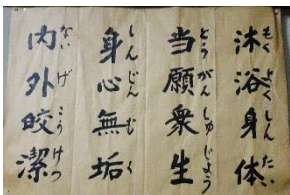 沐浴身体
もくよくしんたい
当願衆生
とうがんしゅじょう
身心無垢
しんじんむく
内外皎潔
ないげこうけつ